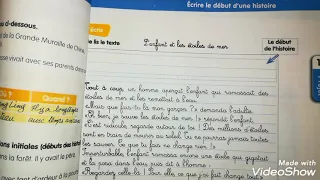 Écrire le début d'une histoire
s d-dessous.
de la Grande Muraille de Chine
esse vivait avec ses parents dans
Quand ?
ons initiales (débuts des
la forêt. Il avait
Écris
lis le texte
L'enfant et les étoiles de mer
Le début
de l'histoire
Tout à coup, un homme aperçut l'enfant qui ramassait des
étoiles de mer et les remettait à l'eau.
- Mais que fais-tu là mon garçon ? demanda l'adulte.
- Eh bien, je sauve les étoiles de mer ! répondit l'enfant.
- C'est ridicule regarde autour de toi ! Des millions d'étoiles
sont en train de mourir au soleil. Tu ne pourras jamais toutes
les sauver. Ce que tu fais ne change rien !
l'enfant ramassa encore une étoile qui gigotait
et la posa dans l'eau puis dit à l'homme :
- Regardez celle-là ! Pour elle, ce que j'ai fait change tout
Made with
VideoShow